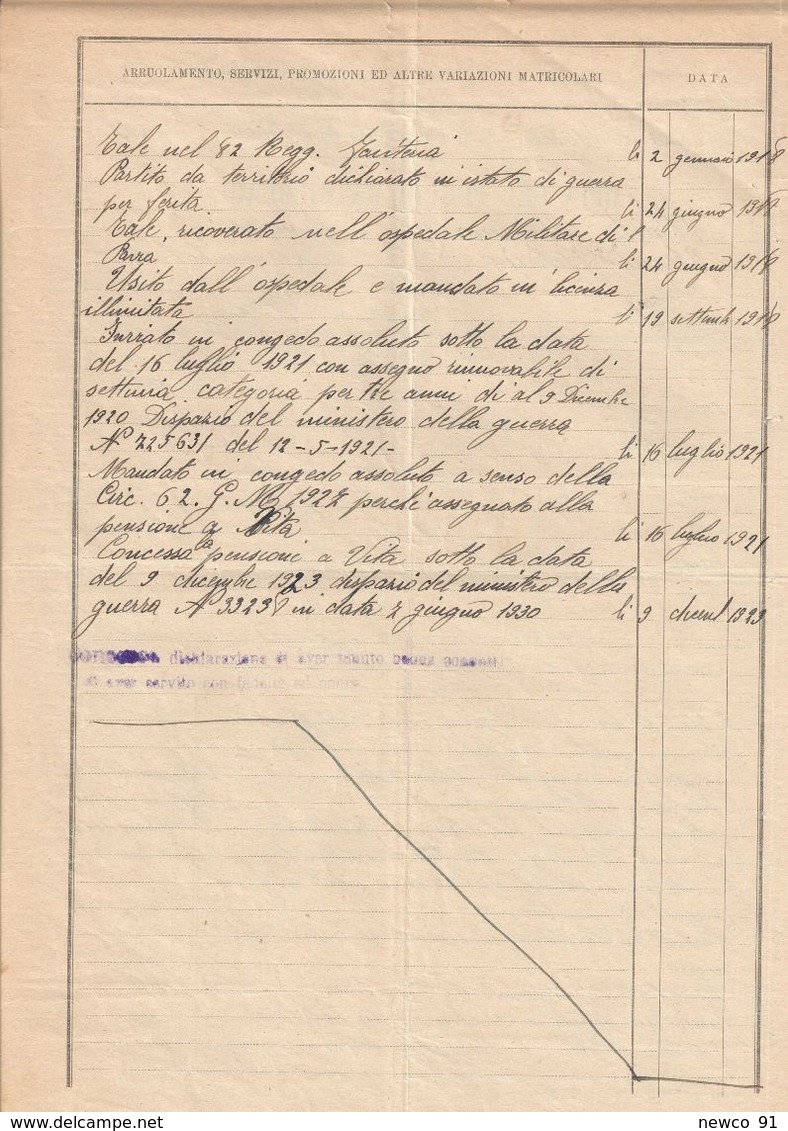 ARRUOLAMENTO, SERVIZI, PROMOZIONI ED ALTRE VARIAZIONI MATRICOLARI DATA
Tale nel 82 Regg. Fanteria li 2 gennaio 1918
Partito da territorio dichiarato in istato di guerra
per ferita. li 24 giugno 1918
Tale, ricoverato nell'ospedale Militare di
Parra li 24 giugno 1918
Usito dall'ospedale e mandato in licenza
illimitata li 19 settemb 1918
in congedo assoluto sotto la data
del 16 luglio 1921 con assegno rinnovabile di
settima categoria per tre anni di al 9 Dicembre
1920 Dispazio del ministero della guerra
N° 225631 del 12-5-1921- li 16 luglio 1921
Mandato in congedo assoluto a senso della
Circ. 62. G. M. 1927 perchè assegnato alla
pensione a Vita li 16 luglio 1921
Concessa la pensione a Vita sotto la data
del 9 dicembre 1923 dispazio del ministero della
guerra N° in data 2 giugno 1930 li 9 dicem 1923
dichiarazione di aver tenuto buona
di aver servito con fedeltà ed onore
newco 91